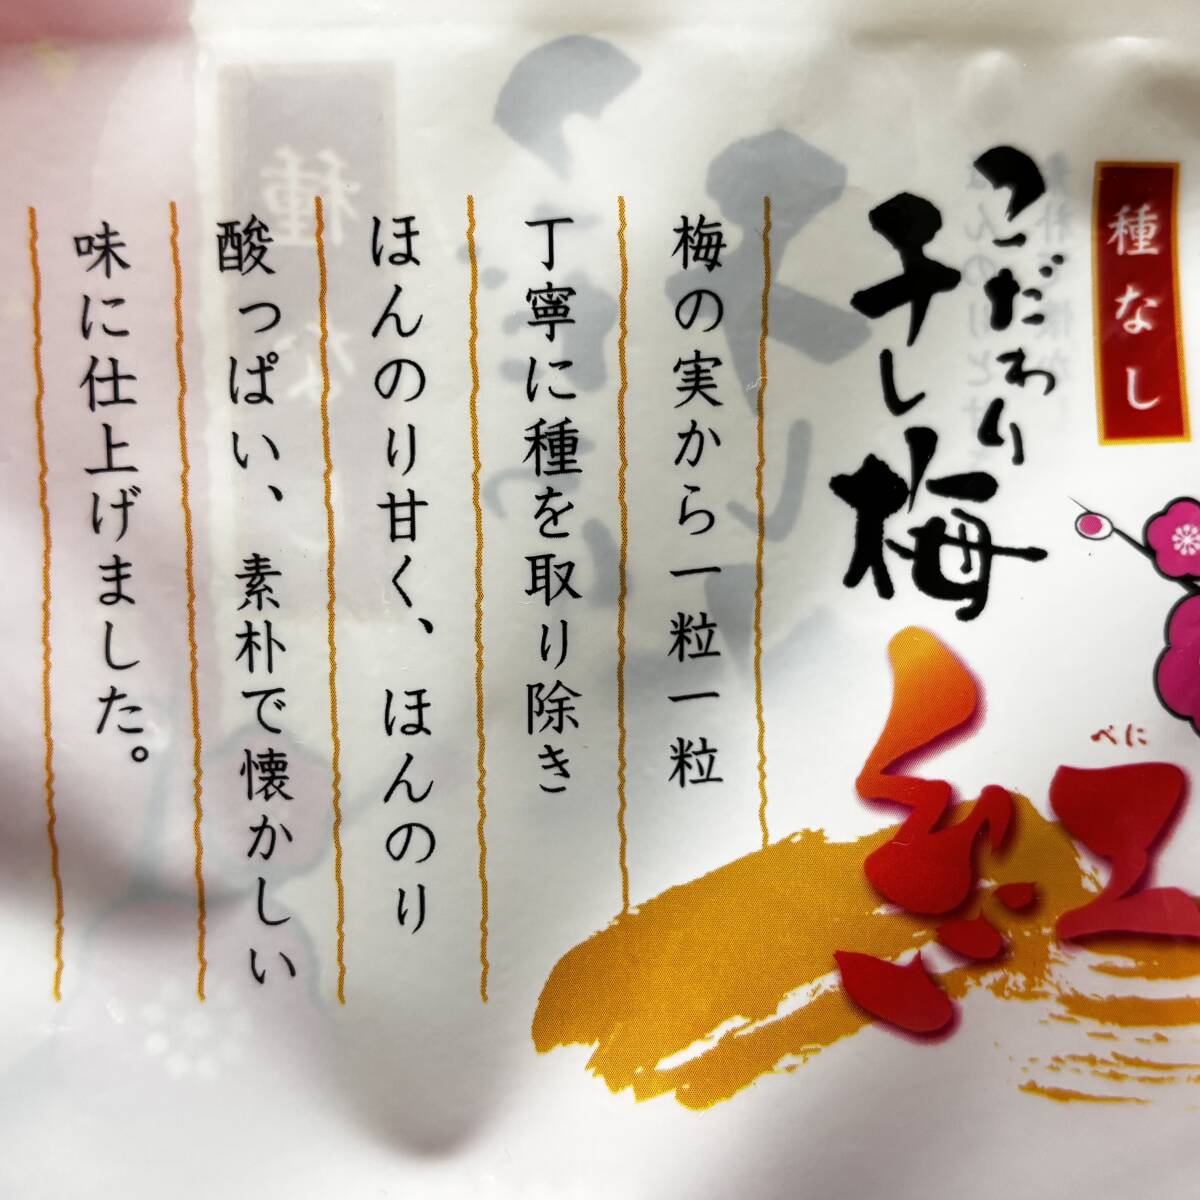 種なし
こだわり
干し梅
べに
紅
梅の実から一粒一粒
丁寧に種を取り除き
ほんのり甘く、ほんのり
酸っぱい、素朴で懐かしい
味に仕上げました。